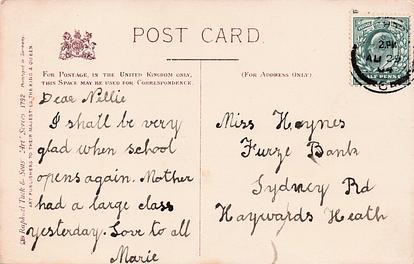 POST CARD.
FOR POSTAGE, IN THE UNITED KINGDOM ONLY,
THIS SPACE MAY BE USED FOR CORRESPONDENCE.
(FOR ADDRESS ONLY.)
Dear Nellie
I shall be very
glad when school
opens again. Mother
had a large class
yesterday. Love to all
Marie
Miss Haynes
Furze Bank
Sydney Rd
Haywards Heath
Raphael Tuck & Sons' "Art" Series 1792
ART PUBLISHERS TO THEIR MAJESTIES THE KING & QUEEN
HALF PENNY
2.PM